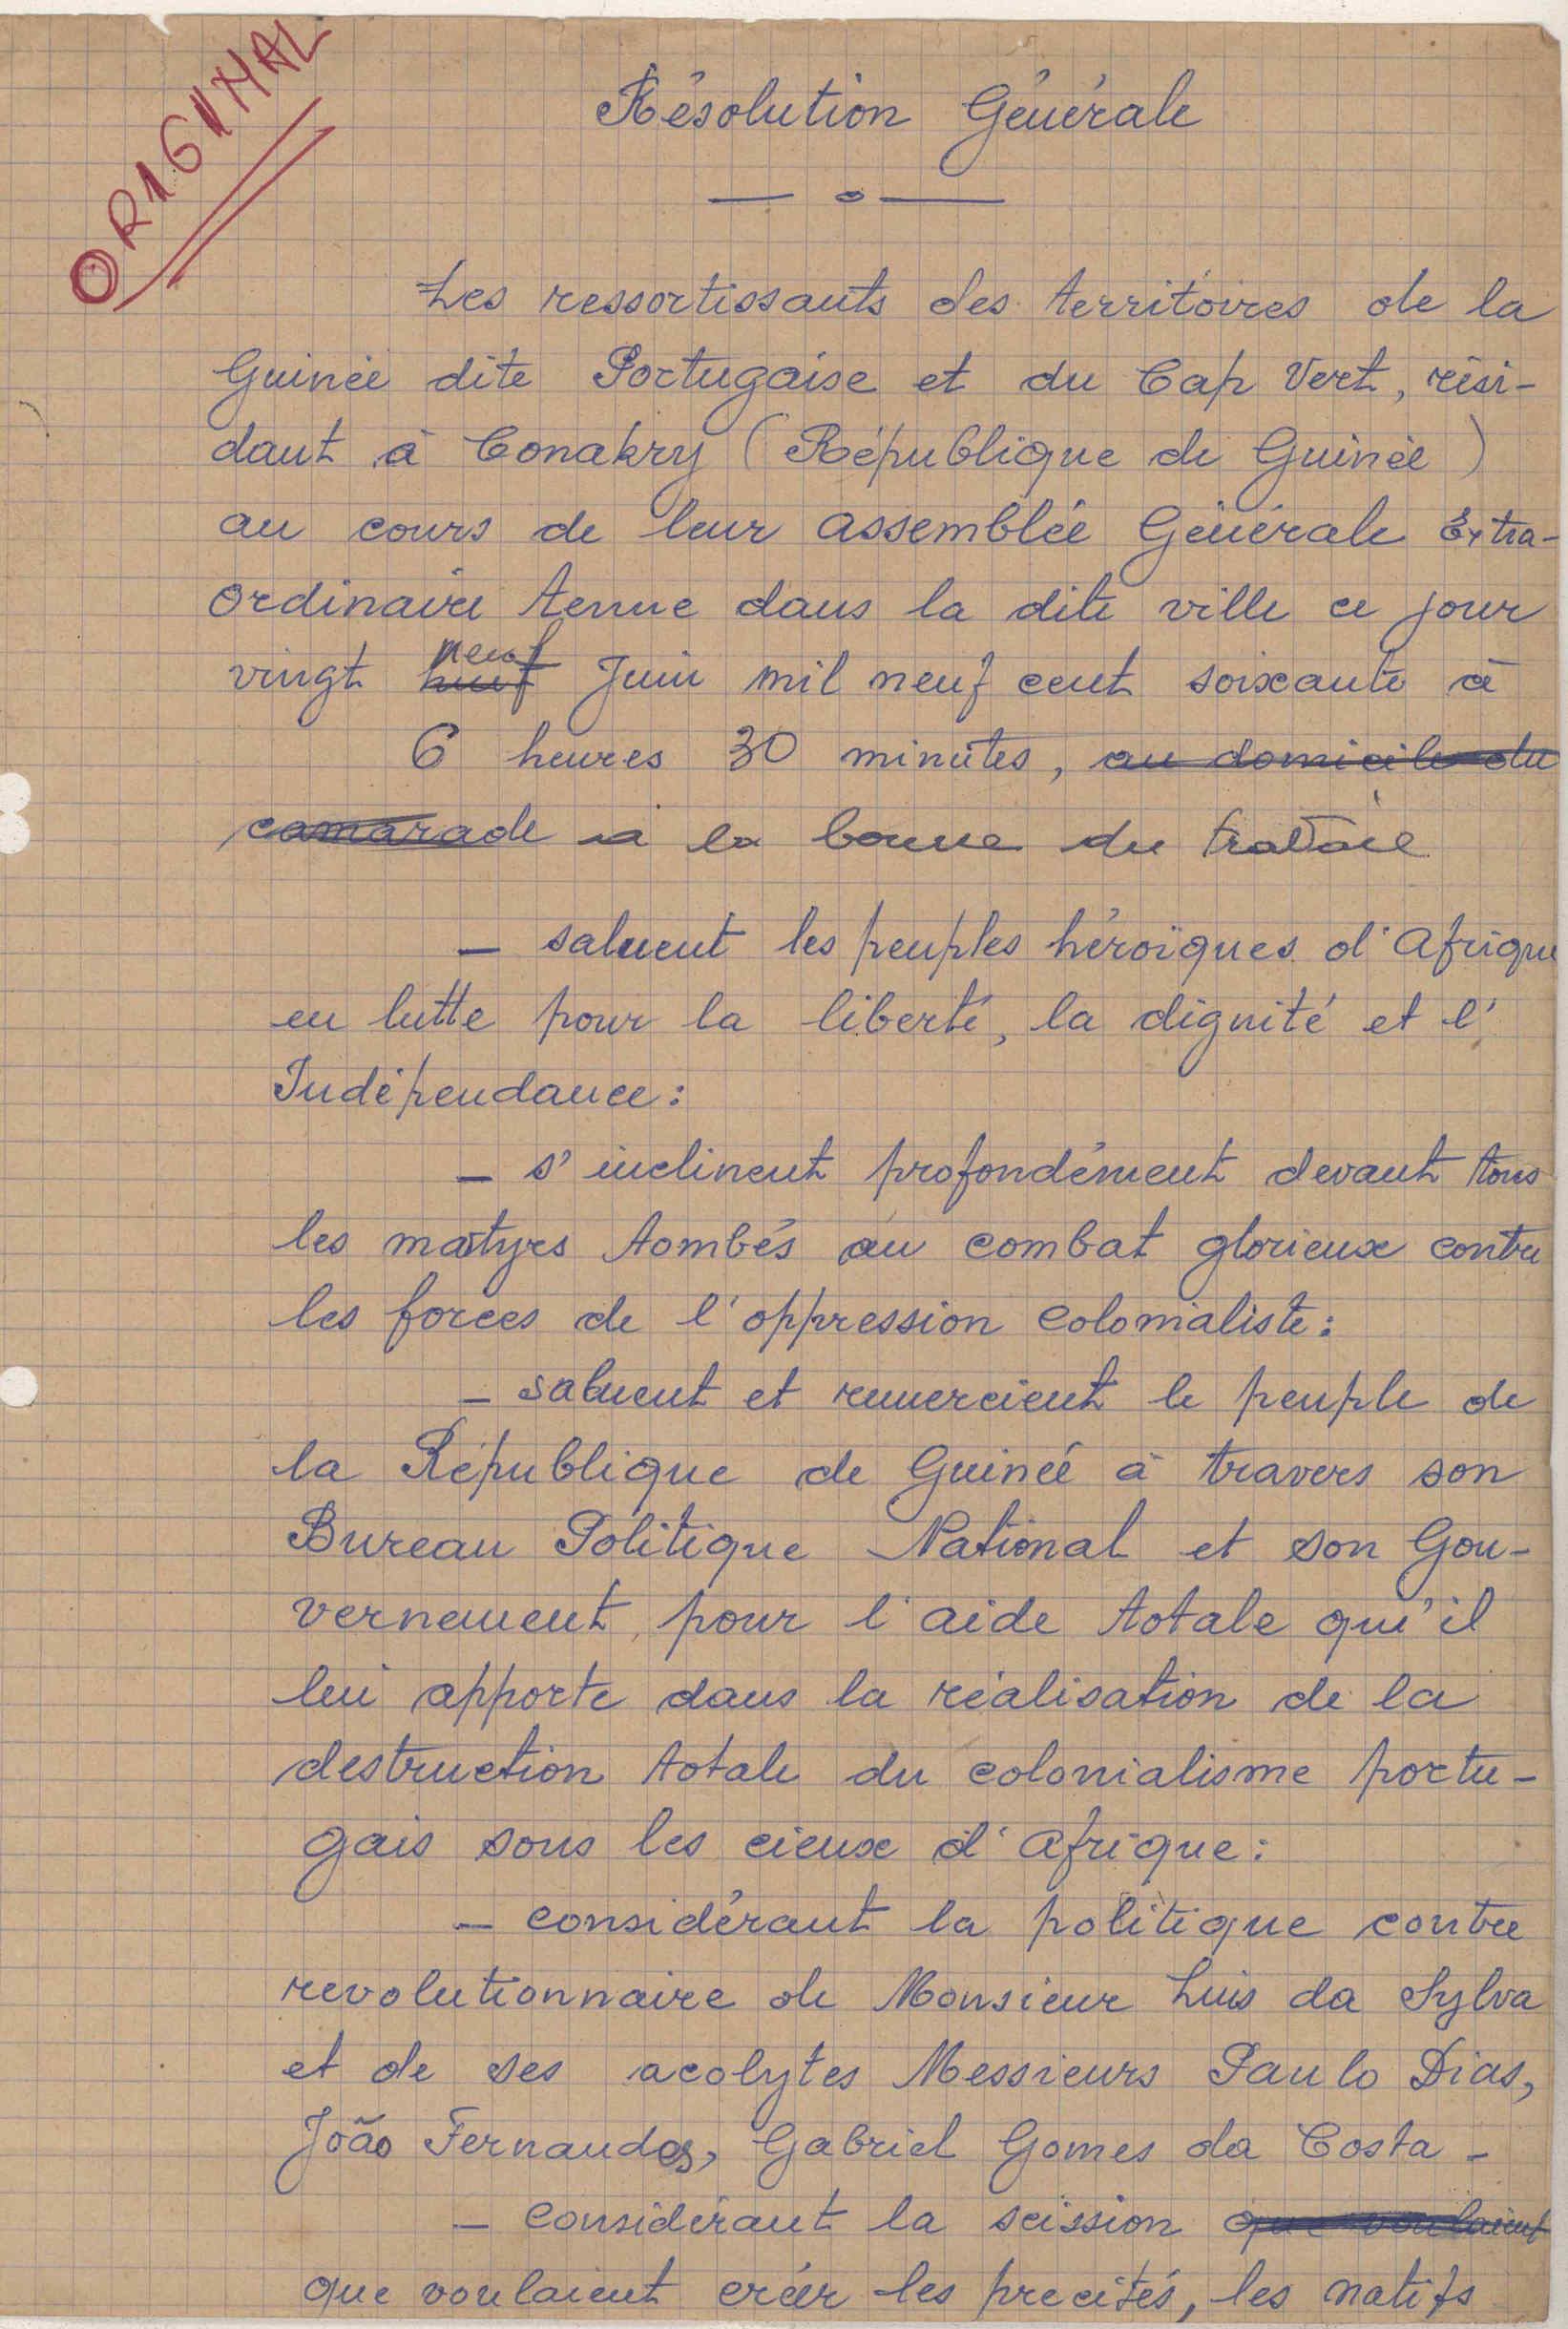 ORIGINAL
Résolution Générale
Les ressortissants des territoires de la
Guinée dite Portugaise et du Cap Vert, rési-
dant à Conakry (République de Guinée)
au cours de leur assemblée Générale Extra-
ordinaire tenue dans la dite ville ce jour
neuf
vingt Juin mil neuf cent soixante à
6 heures 30 minutes, au domicile du
camarade à la bourse du travail
– saluent les peuples héroïques d'Afrique
en lutte pour la liberté, la dignité et l'
Indépendance:
– s'inclinent profondément devant tous
les martyrs tombés au combat glorieux contre
les forces de l'oppression colonialiste:
– saluent et remercient le peuple de
la République de Guinée à travers son
Bureau Politique National et son Gou-
vernement, pour l'aide totale qu'il
lui apporte dans la réalisation de la
destruction totale du colonialisme portu-
gais sous les cieux d'Afrique:
– considérant la politique contre
revolutionnaire de Monsieur Luis da Sylva
et de ses acolytes Messieurs Paulo Dias,
João Fernandes, Gabriel Gomes da Costa –
– considérant la scission que voulaient
que voulaient créer les precités, les natifs